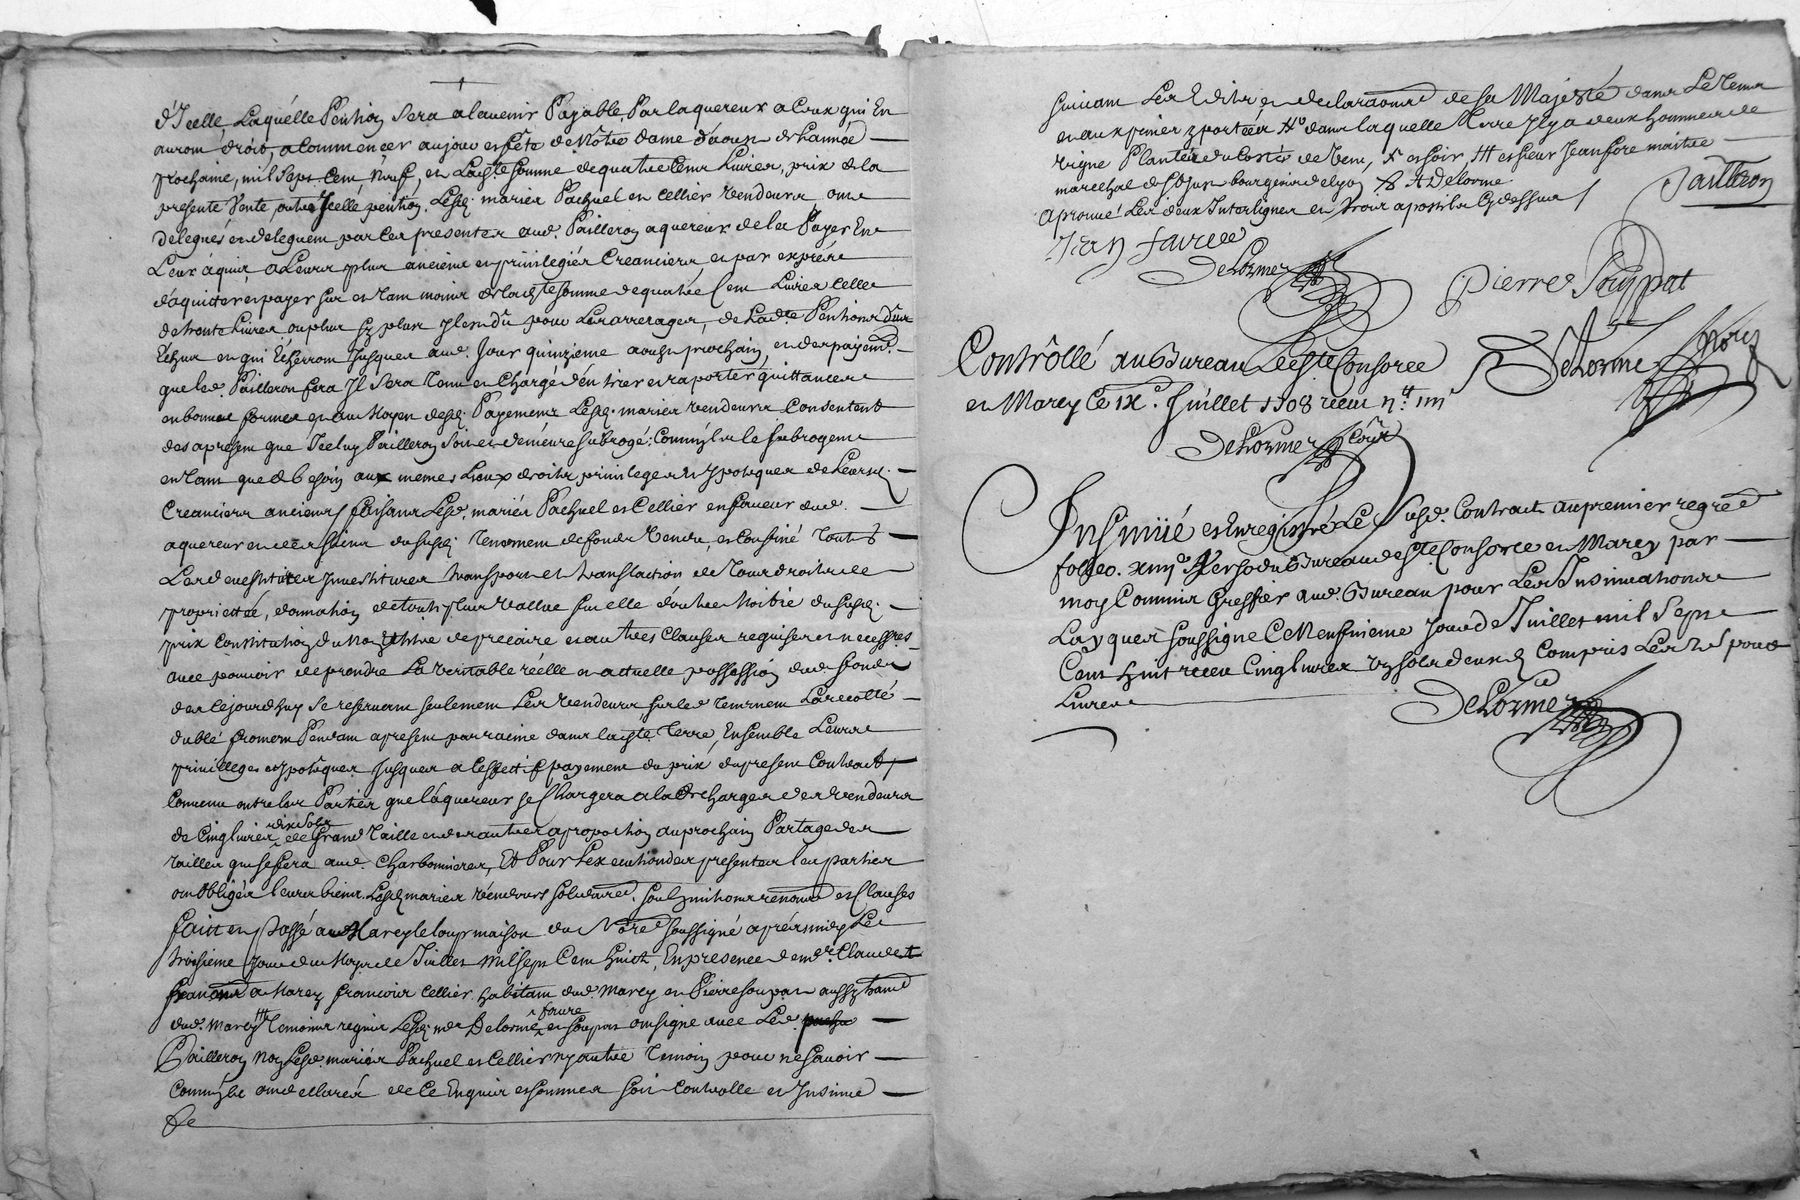 d'Icelle, Laquélle Pention Sera alavenir Payable, Par laquereur a Ceux qui En
auront droit, a Commencer aujour et fête de Nôtre dame d'aoust de Lannée
prochaine, mil Sept Cent Neuf, et Lad.te Somme de quatre Cents Livres, prix de la
presente Vente, outre Icelle pention. Lesd. mariés Pachuel et Cellier Vendeurs, ont
delegués et deleguent par Ces presentes aud. Pailleron aquereur de les Payer En
Leur áquit a Leurs plus anciens et privilegiés Creanciers, et par exprés
d'aquitter et payer sur et tant moins de lad.te Somme de quatre Cent Livres Celle
de trente Livres ou plus sy plus Il est dû pour Les arrerages, de Lad.te Pention
Echus et qui Echerront Jusques aud. Jour quinzieme aoust prochain, et des payem.t
que led. Pailleron fera Il Sera tenu et Chargé d'en tirer et raporter quittances
en bonne forme et au Moyen desd. Payements, Lesd. mariés vendeurs Consentent
des apresent que Iceluy Pailleron Soit et demeure Subrogé; Comm'ils le Subrogent
entant que de besoin aux memes Lieux droits privileges et Ypoteques de Leursd.
Creanciers anciens faisants Lesd. mariés Pachuel et Cellier en faveur dud.
aquereur et des Siens du susd. tenement de fonds Vendu, et Confiné Touttes
Les devestitures Investitures transports et translaction de Tous droits de
proprietté, donnation de toutte plus vallue fut elle d'outre Moitié du susd.
prix Constitution du Nom de precaire et autres Clauses requises et necessres
avec pouvoir de prendre La veritable réelle et actuelle possession dud. fonds
des cejourdhuy Se reservant seulement Les Vendeurs sur led. tenement La recolte
du blé froment Pendant apresent par racine dans lad.te Terre, Ensemble Leurs
privileges et Ypoteques Jusques a Leffectif payement du prix du present Contract,
Convenu entre les Parties que láquereur se Chargera a la decharge des vendeurs
de Cinq livres dix sols de Grand Taille et des autres a proportion au prochain Partage des
tailles qui se fera aud. Charbonnieres, Et Pour Lexecution des presentes les parties
ont obligés leurs biens Lesd. mariés vendeurs Solidaire.t soubmissions renon.on et Clauses
faitt et Passé aud. Marcy le loup maison du No.re Soussigné aprés midy Le
troisieme Jour du Moys de Juillet mil Sept Cent huict, En presence de m.re Claude
a Marcy francois Cellier habitant dud. Marcy et Pierre Soupat aussy habitant
dud. Marcy Temoins requis Lesd. m.re Delorme faure et Soupat ont signé avec Led.
Pailleron Non Lesd. mariés Pachuel et Cellier ny autre Temoin pour ne scavoir
Comm'ils ont declarés de Ce Enquis et sommés soit Controlle et Insinué
De
Suivant Les Edits et declarations de Sa Majesté dans Le Tems
en aux premier dans laquelle terre Il y a deux hommées de
vigne Plantée du Costé de Vent, et soir, et sieur Jean fore maitre
marechal de bourgeois de Lyon Delorme
aprouvé Les deux Interlignes et Trois apostiles Cy dessus
Pailleron
Jean faure
Delorme
Pierre Souppat
Contrôllé au Bureau de S.te Consorce
et Marcy Ce IX.e Juillet 1708 receu
Delorme
Delorme
Insinüé et Enregistré Le susd. Contract au premier regre
folleo. xiiij verso du Bureau de S.te Consorce et Marcy par
moy Commis Greffier aud. Bureau pour Les Insinuations
Layques soussigné Ce Neufvieme Jour de Juillet mil Sept
Cent huit receu Cinq livres Compris Les pour
Livre
Delorme